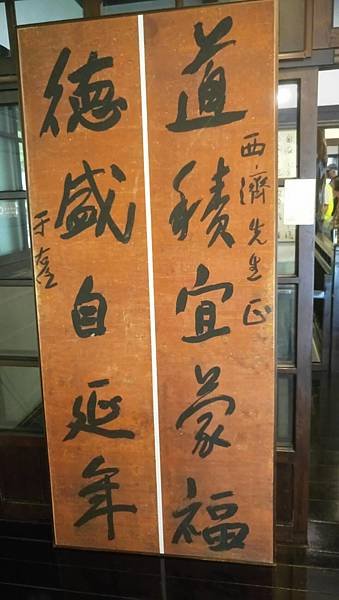 西濟先生正
道積宜蒙福
德盛自延年
于右任